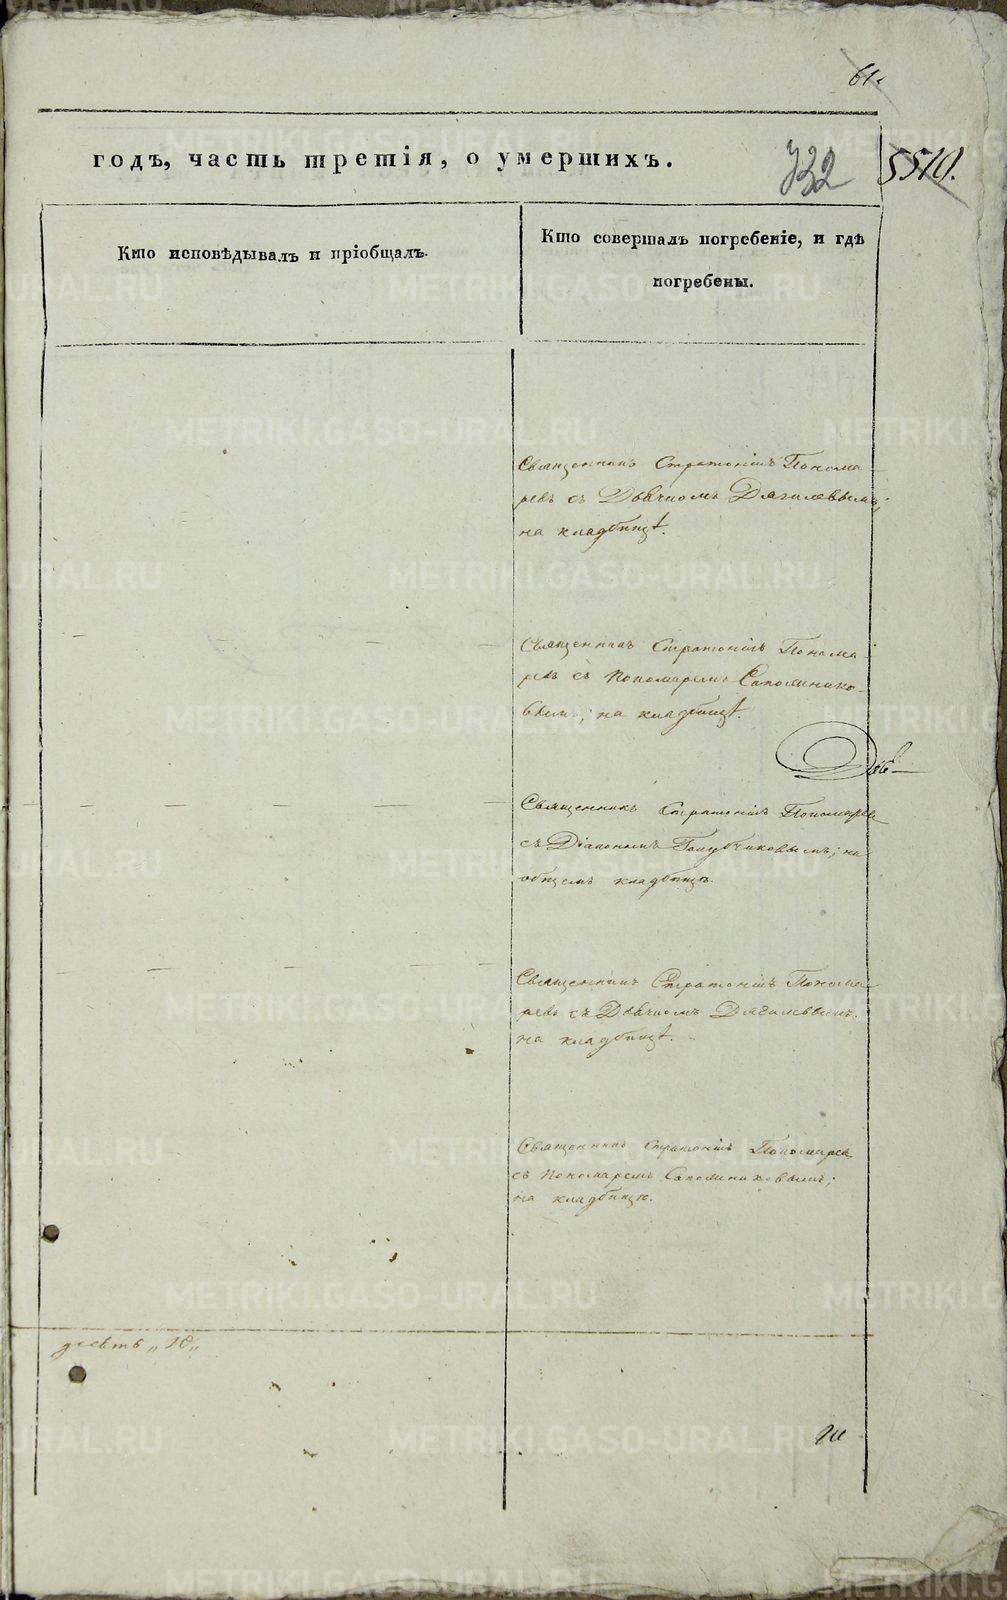 61.
годъ, часть третія, о умершихъ.
732
5510.
Кто исповѣдывалъ и пріобщалъ.
Кто совершалъ погребеніе, и гдѣ
погребены.
Священникъ Стратоникъ Понома
ревъ съ Дьячкомъ Дягилевымъ;
на кладбищѣ.
Священникъ Стратоникъ Понома
ревъ съ Пономаремъ Сапожнико-
вымъ; на кладбищѣ.
Священникъ Стратоникъ Пономаревъ
съ Діакономъ Голубчиковымъ; на
общемъ кладбищѣ.
Священникъ Стратоникъ Понома
ревъ съ Дьячкомъ Дягилевымъ.
на кладбищѣ.
Священникъ Стратоникъ Пономарев
съ Пономаремъ Сапожниковымъ;
на кладбищѣ.
METRIKI.GASO-URAL.RU